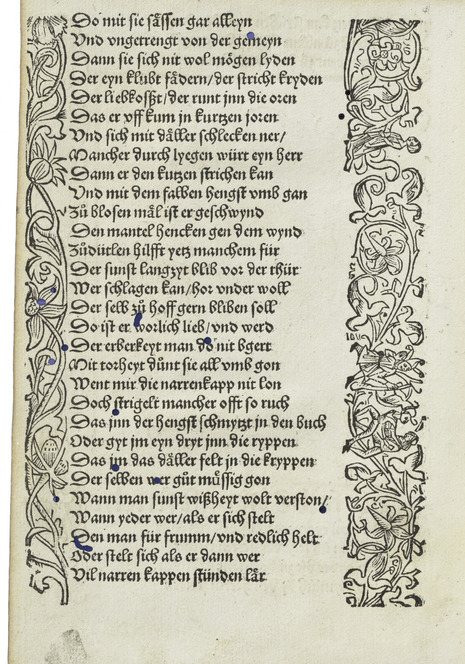 Do mit sie sässen gar alleyn
Vnd vngetrengt von der gemeyn
Dann sie sich nit wol mögen lyden
Der eyn klubt fädern/der stricht kryden
Der liebkoßt/der runt jnn die oren
Das er vff kum in kurtzen joren
Vnd sich mit däller schlecken ner/
Mancher durch lyegen würt eyn herr
Dann er den kutzen strichen kan
Vnd mit dem falben hengst vmb gan
Zů blosen mäl ist er geschwynd
Den mantel hencken gen dem wynd
Zůdütlen hilfft yetz manchem für
Der sunst langzyt blib vor der thür
Wer schlagen kan/hor vnder woll
Der selb zů hoff gern bliben soll
Do ist er worlich lieb/vnd werd
Der erberkeyt man do nit bgert
Mit torheyt důnt sie all vmb gon
Went mir die narrenkapp nit lon
Doch strigelt mancher offt so ruch
Das jnn der hengst schmytzt jn den buch
Oder gyt jm eyn dryt jnn die ryppen
Das jm das däller felt in die kryppen
Der selben wer gůt müssig gon
Wann man sunst wißheyt wolt verston/
Wann yeder wer/als er sich stelt
Den man für frumm/vnd redlich helt
Oder stelt sich als er dann wer
Vil narren kappen stünden lär